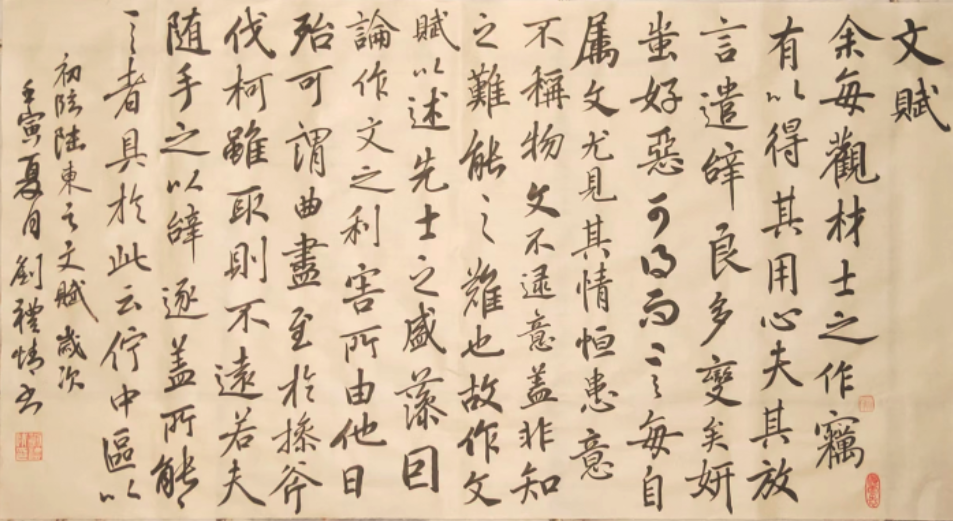 文賦
余每觀材士之作竊
有以得其用心夫其放
言遣辝良多變矣妍
蚩好惡可得而言每自
属文尤見其情恒患意
不稱物文不逮意盖非知
之難能之難也故作文
賦以述先士之盛藻因
論作文之利害所由他日
殆可謂曲盡至於操斧
伐柯雖取則不遠若夫
随手之以辝逐盖所能
言者具於此云佇中區以
初臨陸柬之文賦歲次
壬寅夏月劉禮情书